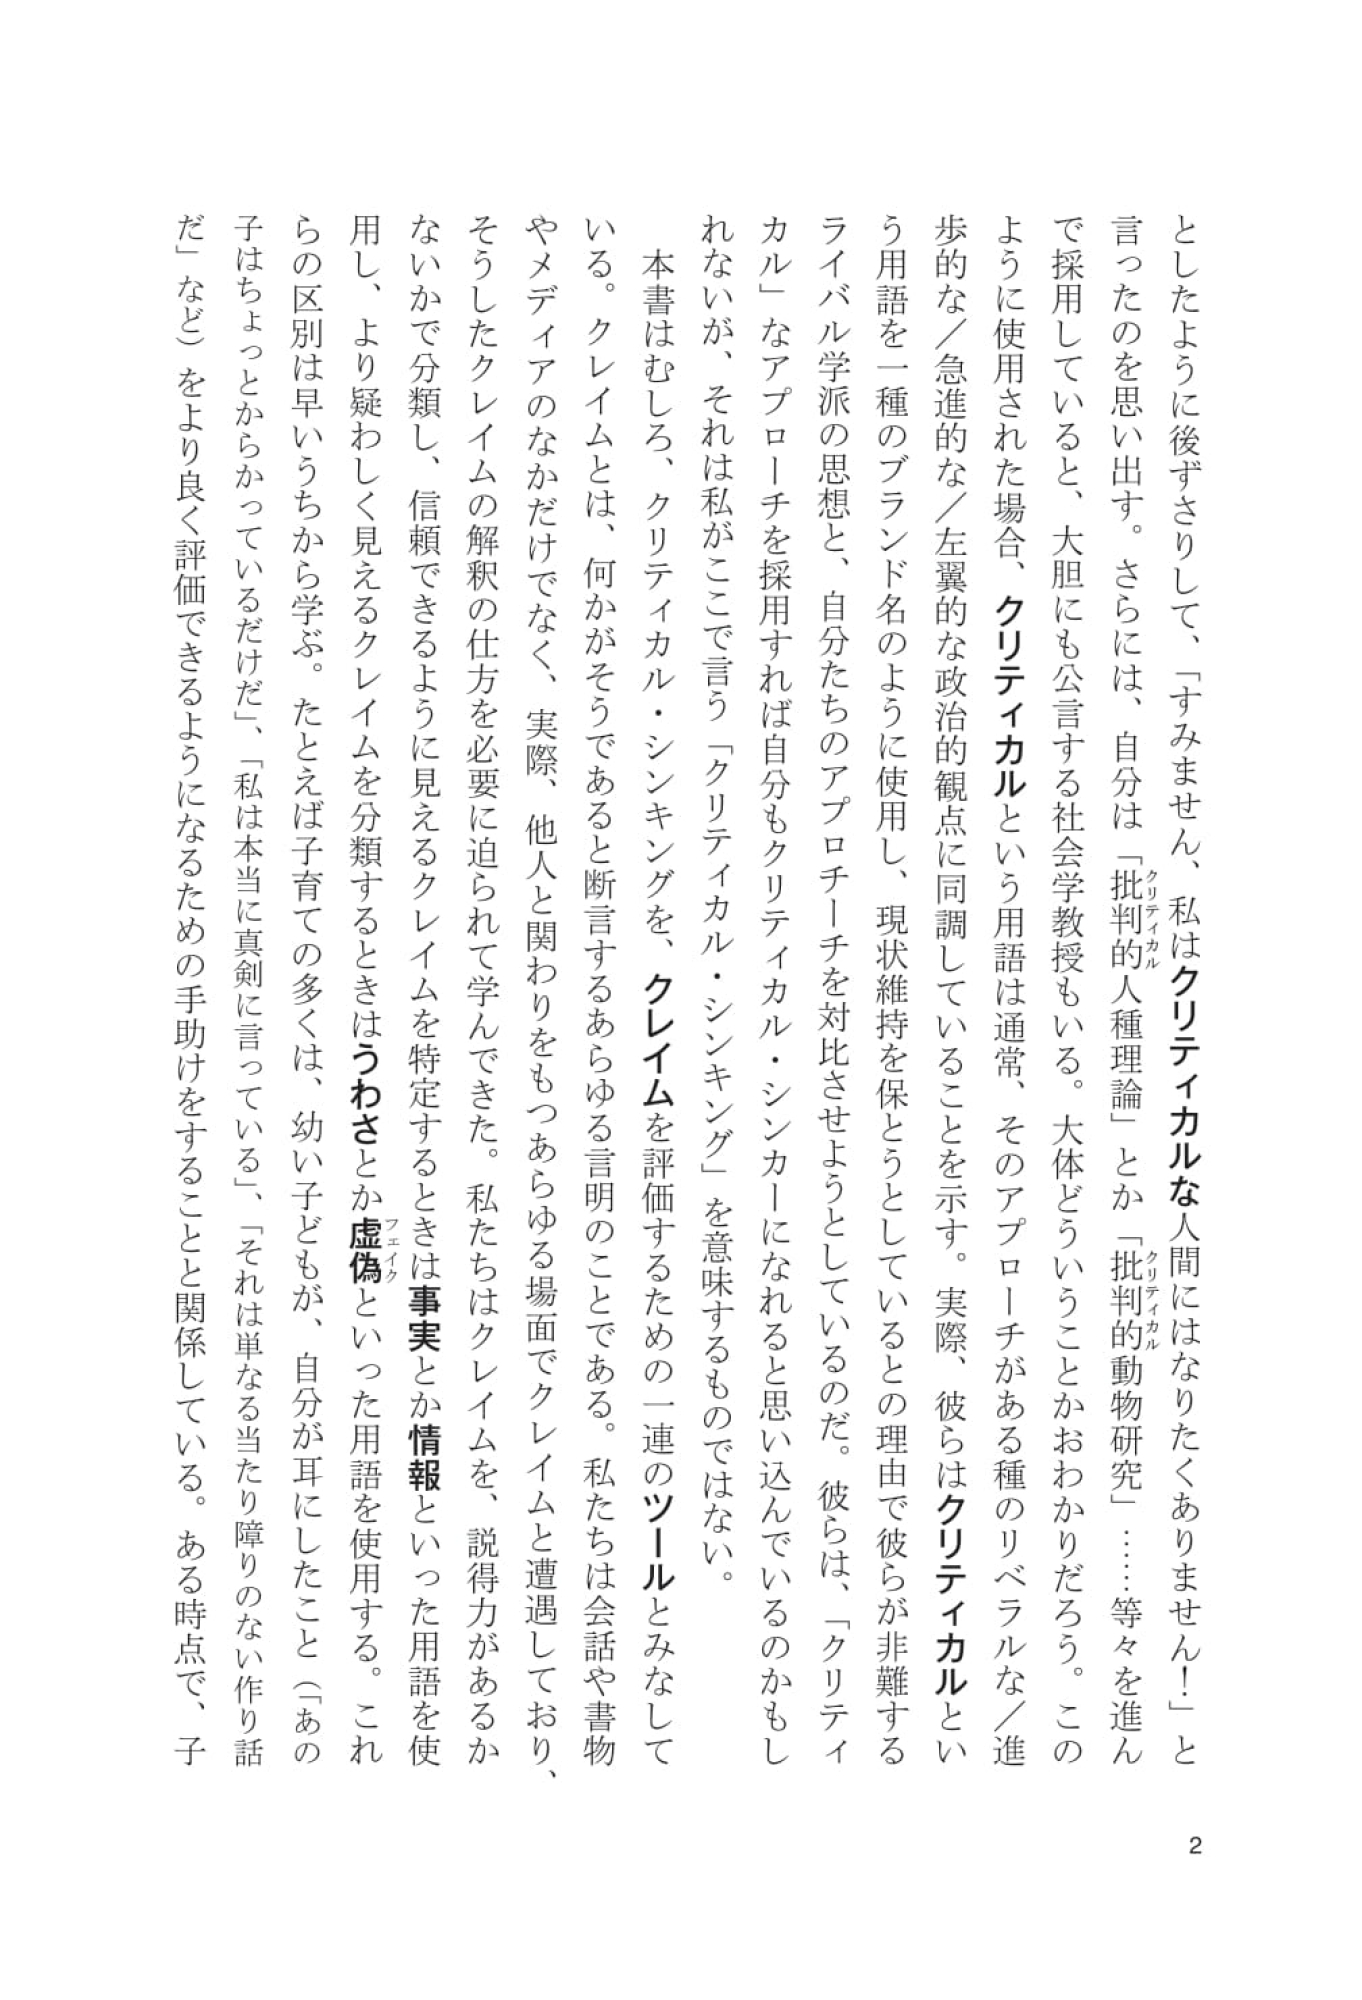 としたように後ずさりして、「すみません、私はクリティカルな人間にはなりたくありません！」と
言ったのを思い出す。さらには、自分は「批判的人種理論」とか「批判的動物研究」……等々を進ん
クリティカル
クリティカル
で採用していると、大胆にも公言する社会学教授もいる。大体どういうことかおわかりだろう。この
ように使用された場合、クリティカルという用語は通常、そのアプローチがある種のリベラルな／進
歩的な／急進的な／左翼的な政治的観点に同調していることを示す。実際、彼らはクリティカルとい
う用語を一種のブランド名のように使用し、現状維持を保とうとしているとの理由で彼らが非難する
ライバル学派の思想と、自分たちのアプロチーチを対比させようとしているのだ。彼らは、「クリティ
カル」なアプローチを採用すれば自分もクリティカル・シンカーになれると思い込んでいるのかもし
れないが、それは私がここで言う「クリティカル・シンキング」を意味するものではない。
本書はむしろ、クリティカル・シンキングを、クレイムを評価するための一連のツールとみなして
いる。クレイムとは、何かがそうであると断言するあらゆる言明のことである。私たちは会話や書物
やメディアのなかだけでなく、実際、他人と関わりをもつあらゆる場面でクレイムと遭遇しており、
そうしたクレイムの解釈の仕方を必要に迫られて学んできた。私たちはクレイムを、説得力があるか
ないかで分類し、信頼できるように見えるクレイムを特定するときは事実とか情報といった用語を使
用し、より疑わしく見えるクレイムを分類するときはうわさとか虚偽といった用語を使用する。これ
フェイク
らの区別は早いうちから学ぶ。たとえば子育ての多くは、幼い子どもが、自分が耳にしたこと（「あの
子はちょっとからかっているだけだ」、「私は本当に真剣に言っている」、「それは単なる当たり障りのない作り話
だ」など）をより良く評価できるようになるための手助けをすることと関係している。ある時点で、子
2